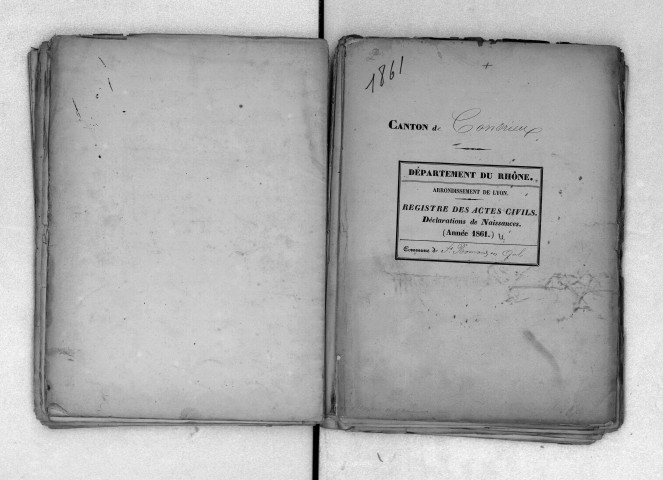 1861
+
CANTON de Condrieux
DÉPARTEMENT DU RHÔNE.
ARRONDISSEMENT DE LYON.
REGISTRE DES ACTES CIVILS.
Déclarations de Naissances.
(Année 1861.)
Commune de St Romain en Gal